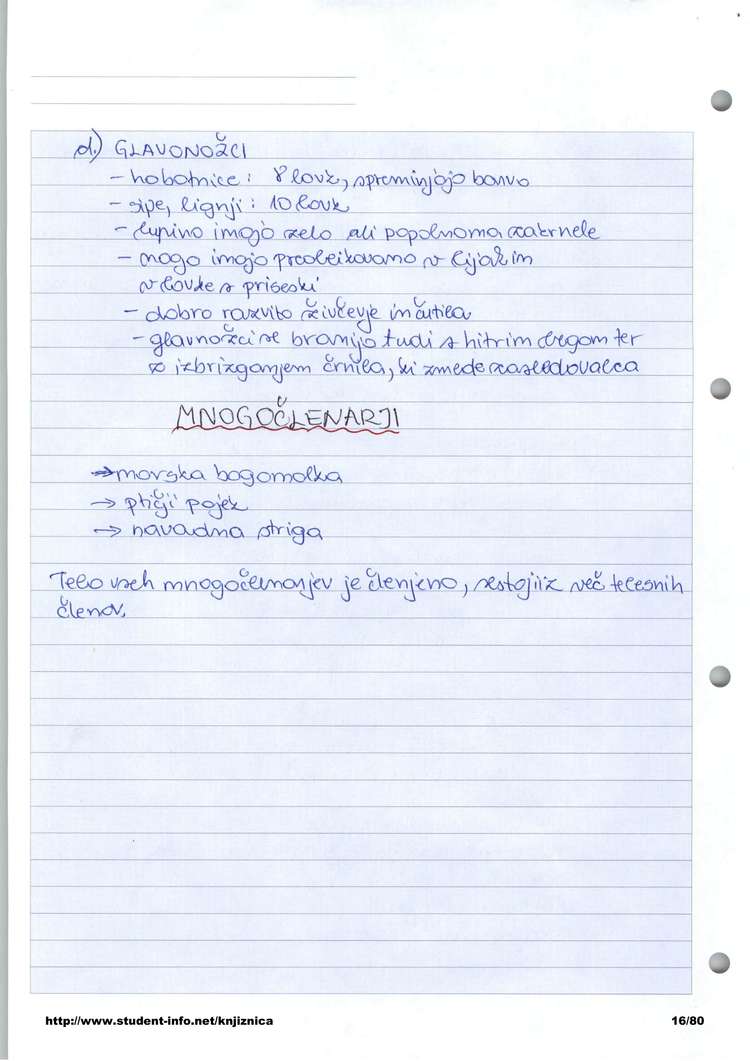 d.) GLAVONOŽCI
- hobotnice: 8 lovk, spreminjajo barvo
- sipe, lignji: 10 lovk
- lupino imajo zelo ali popolnoma zakrnele
- nogo imajo preoblikovano v lijak in
v lovke s priseski
- dobro razvito živčevje in čutila
- glavnožci se branijo tudi s hitrim begom ter
z izbrizganjem črnila, ki zmede zasledovalca
MNOGOČLENARJI
→ morska bogomolka
→ ptičji pajek
→ navadna striga
Telo vseh mnogočlenarjev je členjeno, sestoji iz več telesnih
členov.
http://www.student-info.net/knjiznica
16/80